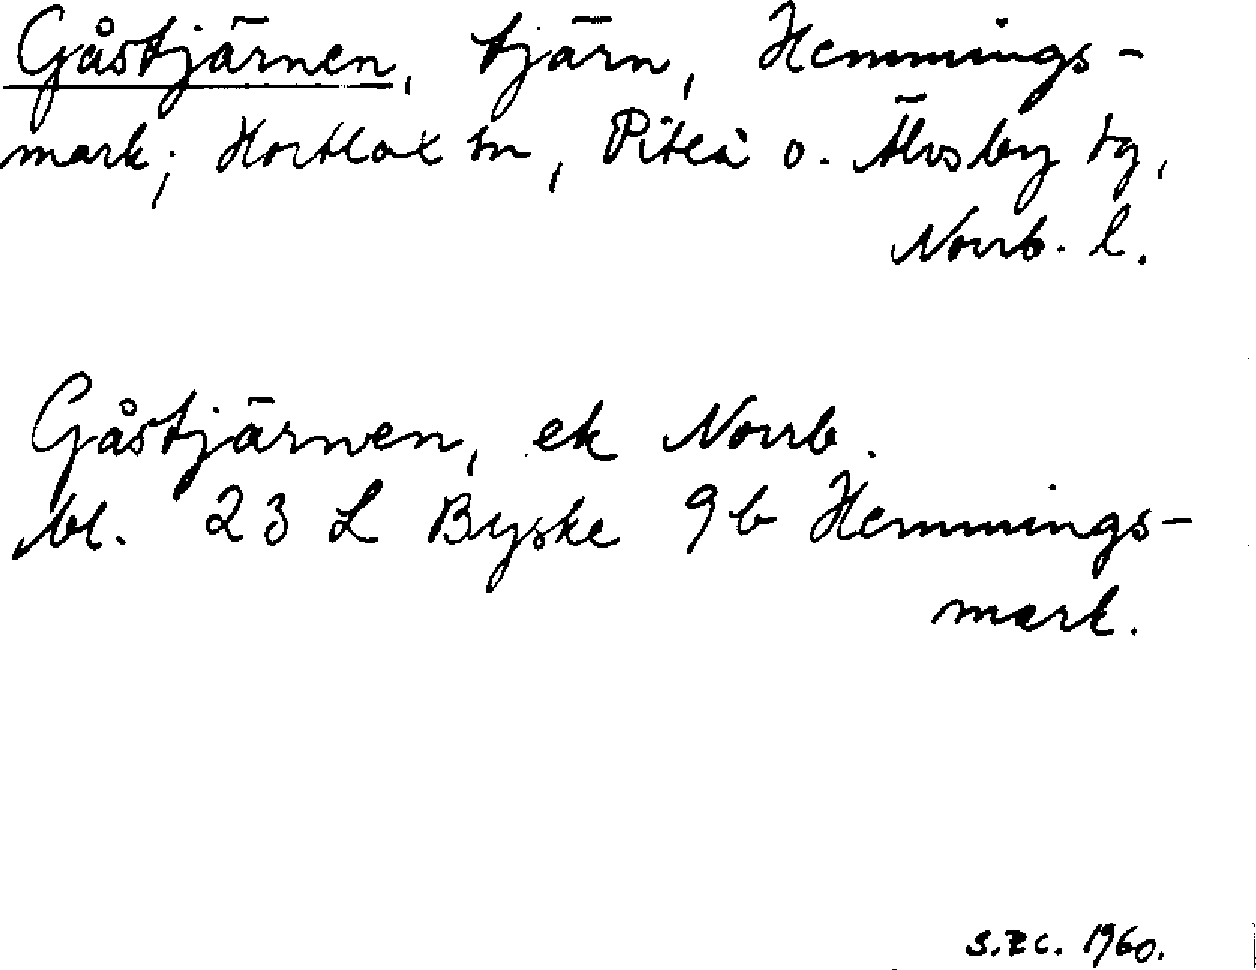 Gåstjärnen, tjärn, Hemmings-
mark; Hortlax sn, Piteå o. Älvsby tg,
Norrb. l.
Gåstjärnen, ek Norrb.
bl. 23 L Byske 9b Hemmings-
mark.
1960.